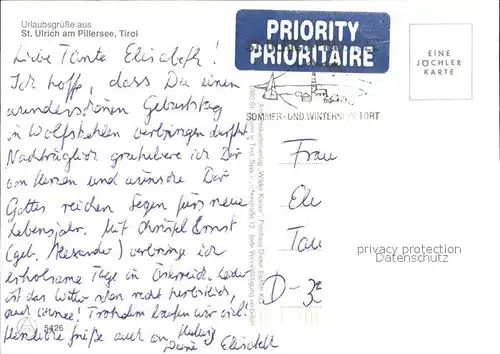 Urlaubsgrüße aus
St. Ulrich am Pillersee, Tirol
PRIORITY
PRIORITAIRE
EINE
JÖCHLER
KARTE
SOMMER- UND WINTERSPORT
Liebe Tante Elisabeth!
Ich hoffe, dass Du einen
wunderschönen Geburtstag
in Wolfskehlen verbringen durftest
Nachträglich gratuliere ich Dir
von Herzen und wünsche Dir
Gottes reichen Segen fürs neue
Lebensjahr. Mit Christel Ernst
(geb. Alexander) verbringe ich
erholsame Tage in Österreich. Leider
ist das Wetter schon recht herbstlich,
auch Schnee! Trotzdem laufen wir viel!
Herzliche Grüße auch an
Deine Elisabeth
Frau
Eli
Tau
D-
privacy protection
Datenschutz
5426